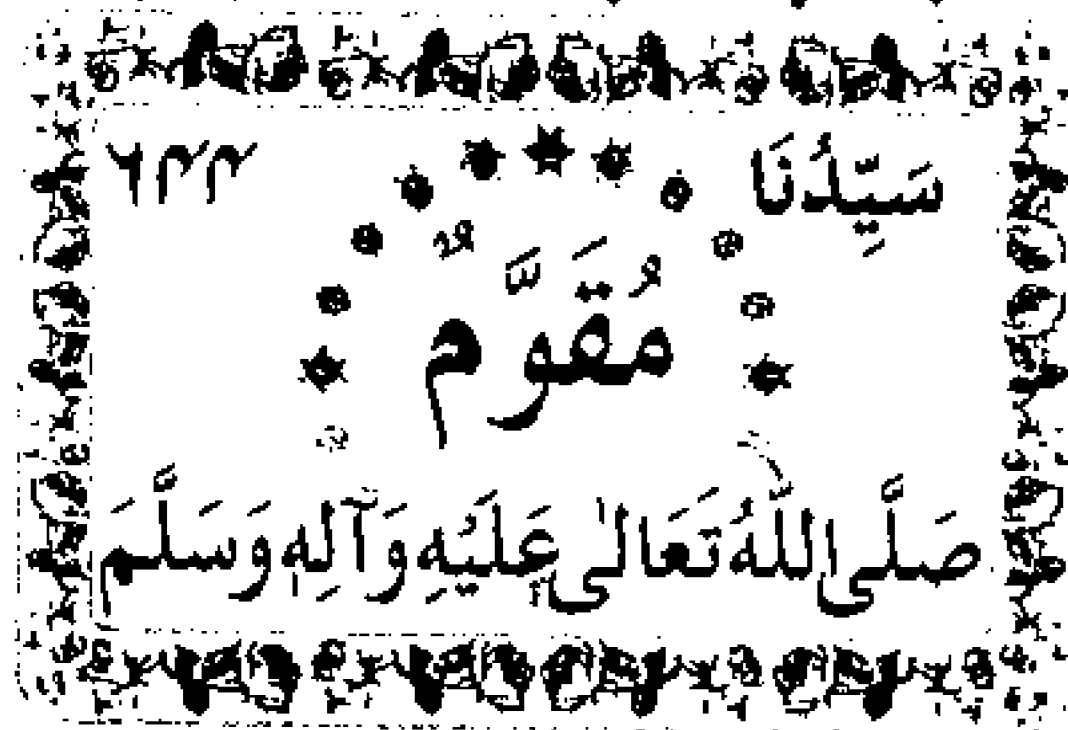 سَيِّدُنَا ٦٣٣
مُقَوَّمٌ
صَلَّى اللّٰهُ تَعَالٰى عَلَيْهِ وَآلِهٖ وَسَلَّمَ